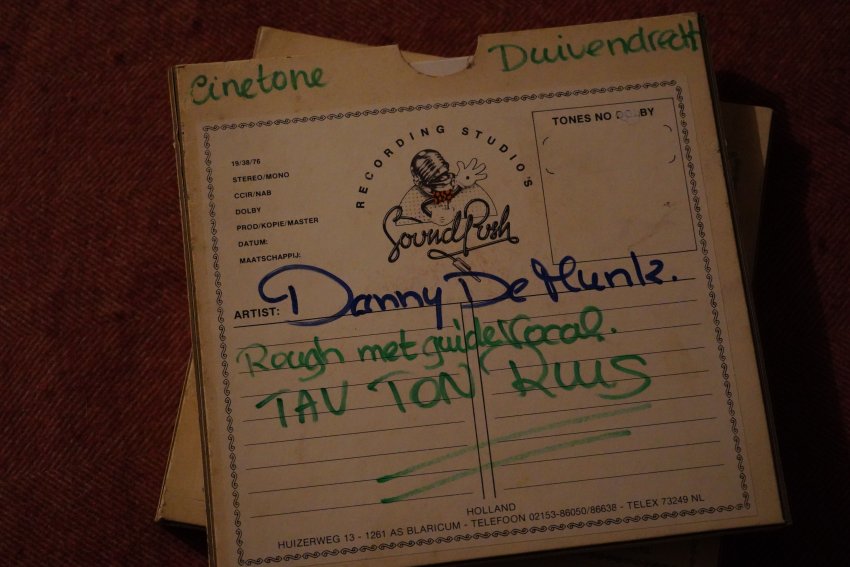 Cinetone Duivendrecht
RECORDING STUDIO'S
SoundPush
TONES NO DOLBY
19/38/76
STEREO/MONO
CCIR/NAB
DOLBY
PROD/KOPIE/MASTER
DATUM:
MAATSCHAPPIJ:
ARTIST: Danny De Munk.
Rough met guide Vocal.
TAV TON RUUS
HOLLAND
HUIZERWEG 13 - 1261 AS BLARICUM - TELEFOON 02153-86050/86638 - TELEX 73249 NL